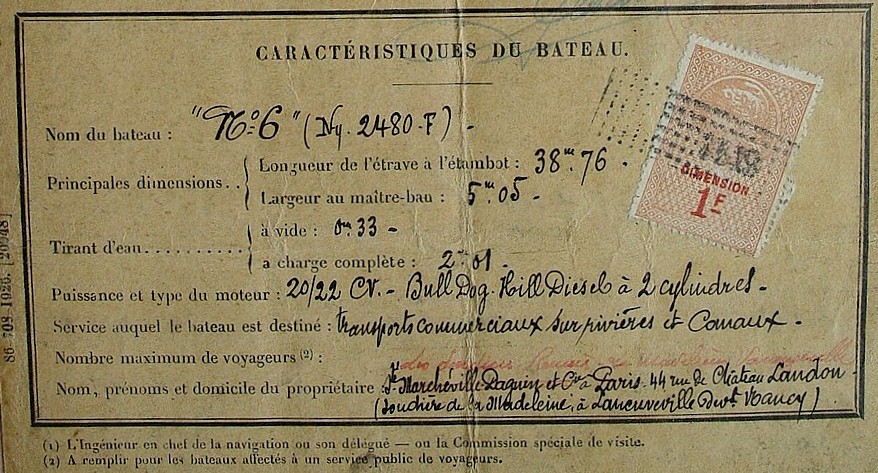 CARACTÉRISTIQUES DU BATEAU.
Nom du bateau : "No 6" (Ny. 2480-F) -
Principales dimensions.. Longueur de l'étrave à l'étambot : 38m76 -
Largeur au maître-bau : 5m05 -
Tirant d'eau.......... à vide : 0m33 -
a charge complète : 2m01 -
Puissance et type du moteur : 20/22 CV. - Bull Dog. Hill Diesel à 2 cylindres -
Service auquel le bateau est destiné : transports commerciaux sur rivières et Canaux -
Nombre maximum de voyageurs (2) :
Nom, prénoms et domicile du propriétaire : Sté Marchéville Daguin et Cie à Paris. 44 rue de Château Landon -
(Soudière de la Madeleine, à Laneuveville Devt Nancy)
(1) L'Ingénieur en chef de la navigation ou son délégué — ou la Commission spéciale de visite.
(2) A remplir pour les bateaux affectés à un service public de voyageurs.
DIMENSION
1F